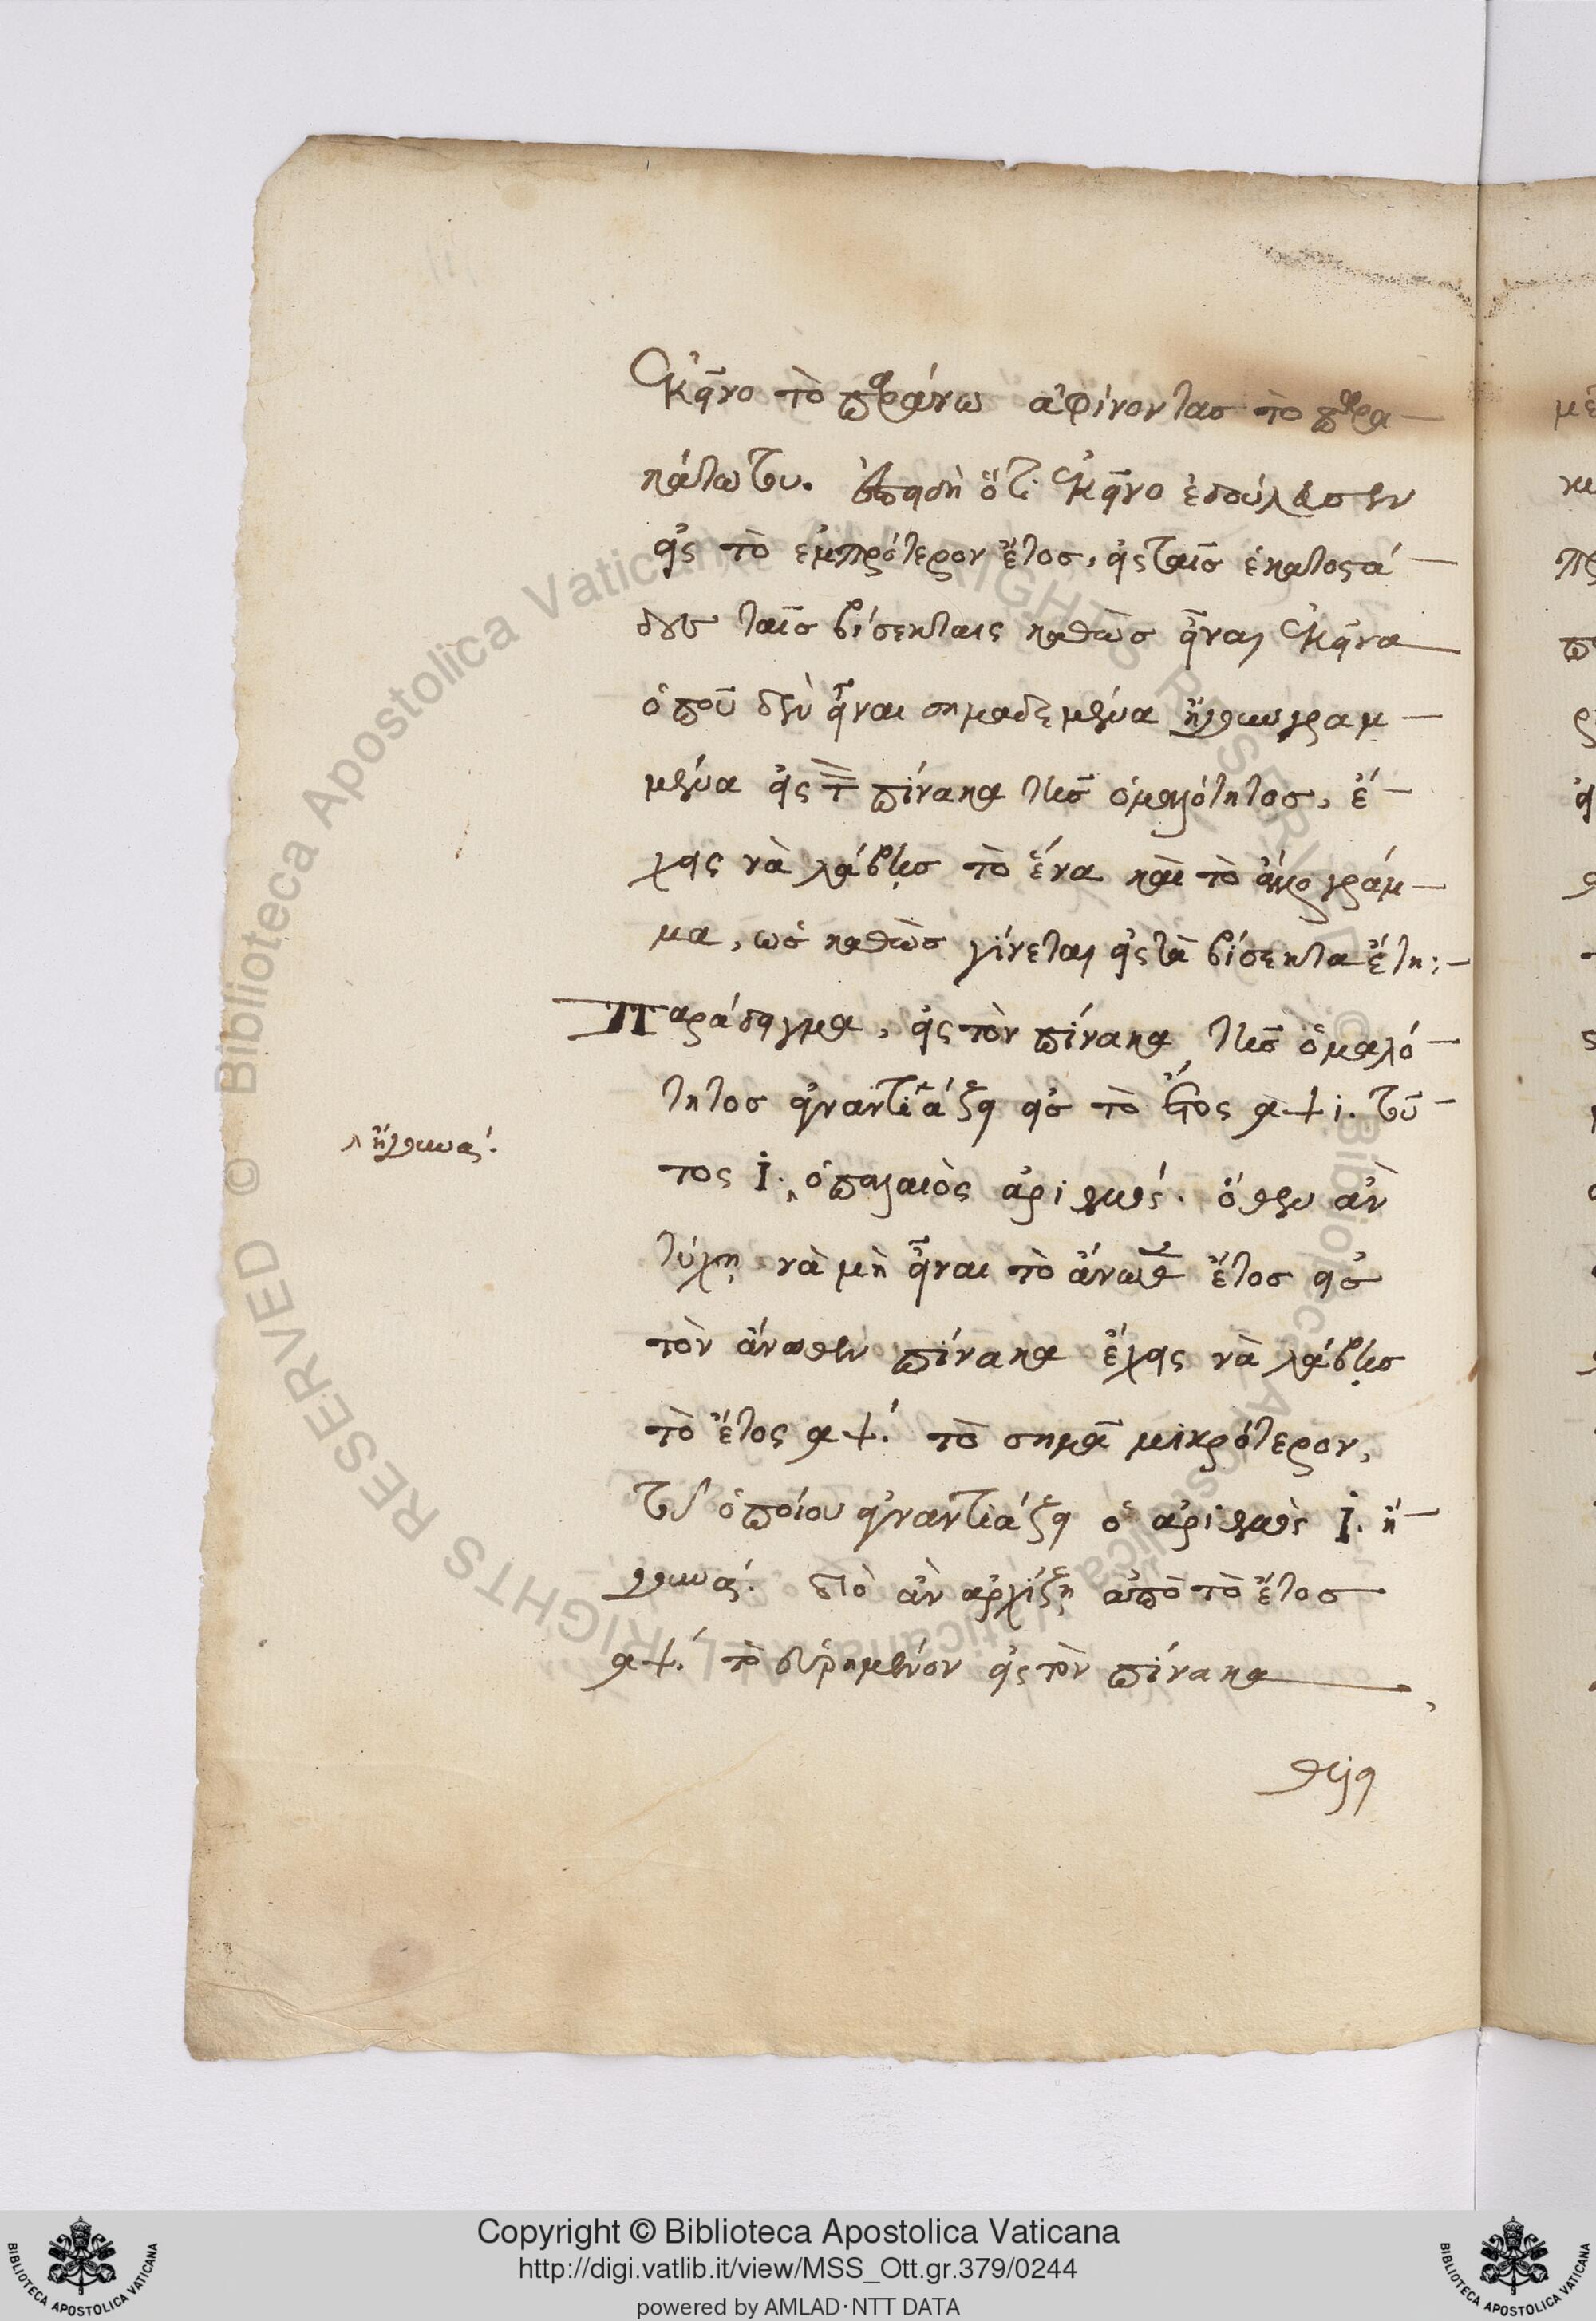 ἐκεῖνο τὸ παράνω ἀφίνοντας τὸ παρα-
κάτω του. ἐπειδὴ ὅτι ἐκεῖνο ἐδούλευσεν
εἰς τὸ ἐμπρότερον ἔτος, εἰς ταῖς ἑκατοστά-
δες ταῖς βίσεκταις καθὼς εἶναι ἐκεῖνα
ὁποῦ δὲν εἶναι σημαδεμένα γραμ-
μένα εἰς τ πίνακα τῆς ὁμαλότητος, ἔ-
χεις νὰ λάβῃς τὸ ἕνα καὶ τὸ ἄκρο γράμ-
μα, ὡς καθὼς γίνεται εἰς τὰ βίσεκτα ἔτη:-
Παράδειγμα, εἰς τὸν πίνακα τῆς ὁμαλό-
τητος ἐναντιάζει εἰς τὸ ἔτος αψι. τοῦ-
τος Ι. ὁ παλαιὸς ἀριθμός. ὅθεν ἂν
τύχῃ νὰ μὴ εἶναι τὸ ἄνωθε ἔτος εἰς
τὸν ἄνωθεν πίνακα ἔχεις νὰ λάβῃς
τὸ ἔτος αψ. τὸ σημὰ μικρότερον,
τοῦ ὁποίου ἐναντιάζει ὁ ἀριθμὸς Ι. ἢ
διὸ ἂν ἀρχίζῃ ἀπὸ τὸ ἔτος
αψ. τὸ εὑρημένον εἰς τὸν πίνακα
Copyright © Biblioteca Apostolica Vaticana
http://digi.vatlib.it/view/MSS_Ott.gr.379/0244
powered by AMLAD·NTT DATA
BIBLIOTECA APOSTOLICA VATICANA
BIBLIOTECA APOSTOLICA VATICANA
© Biblioteca Apostolica Vaticana ALL RIGHTS RESERVED